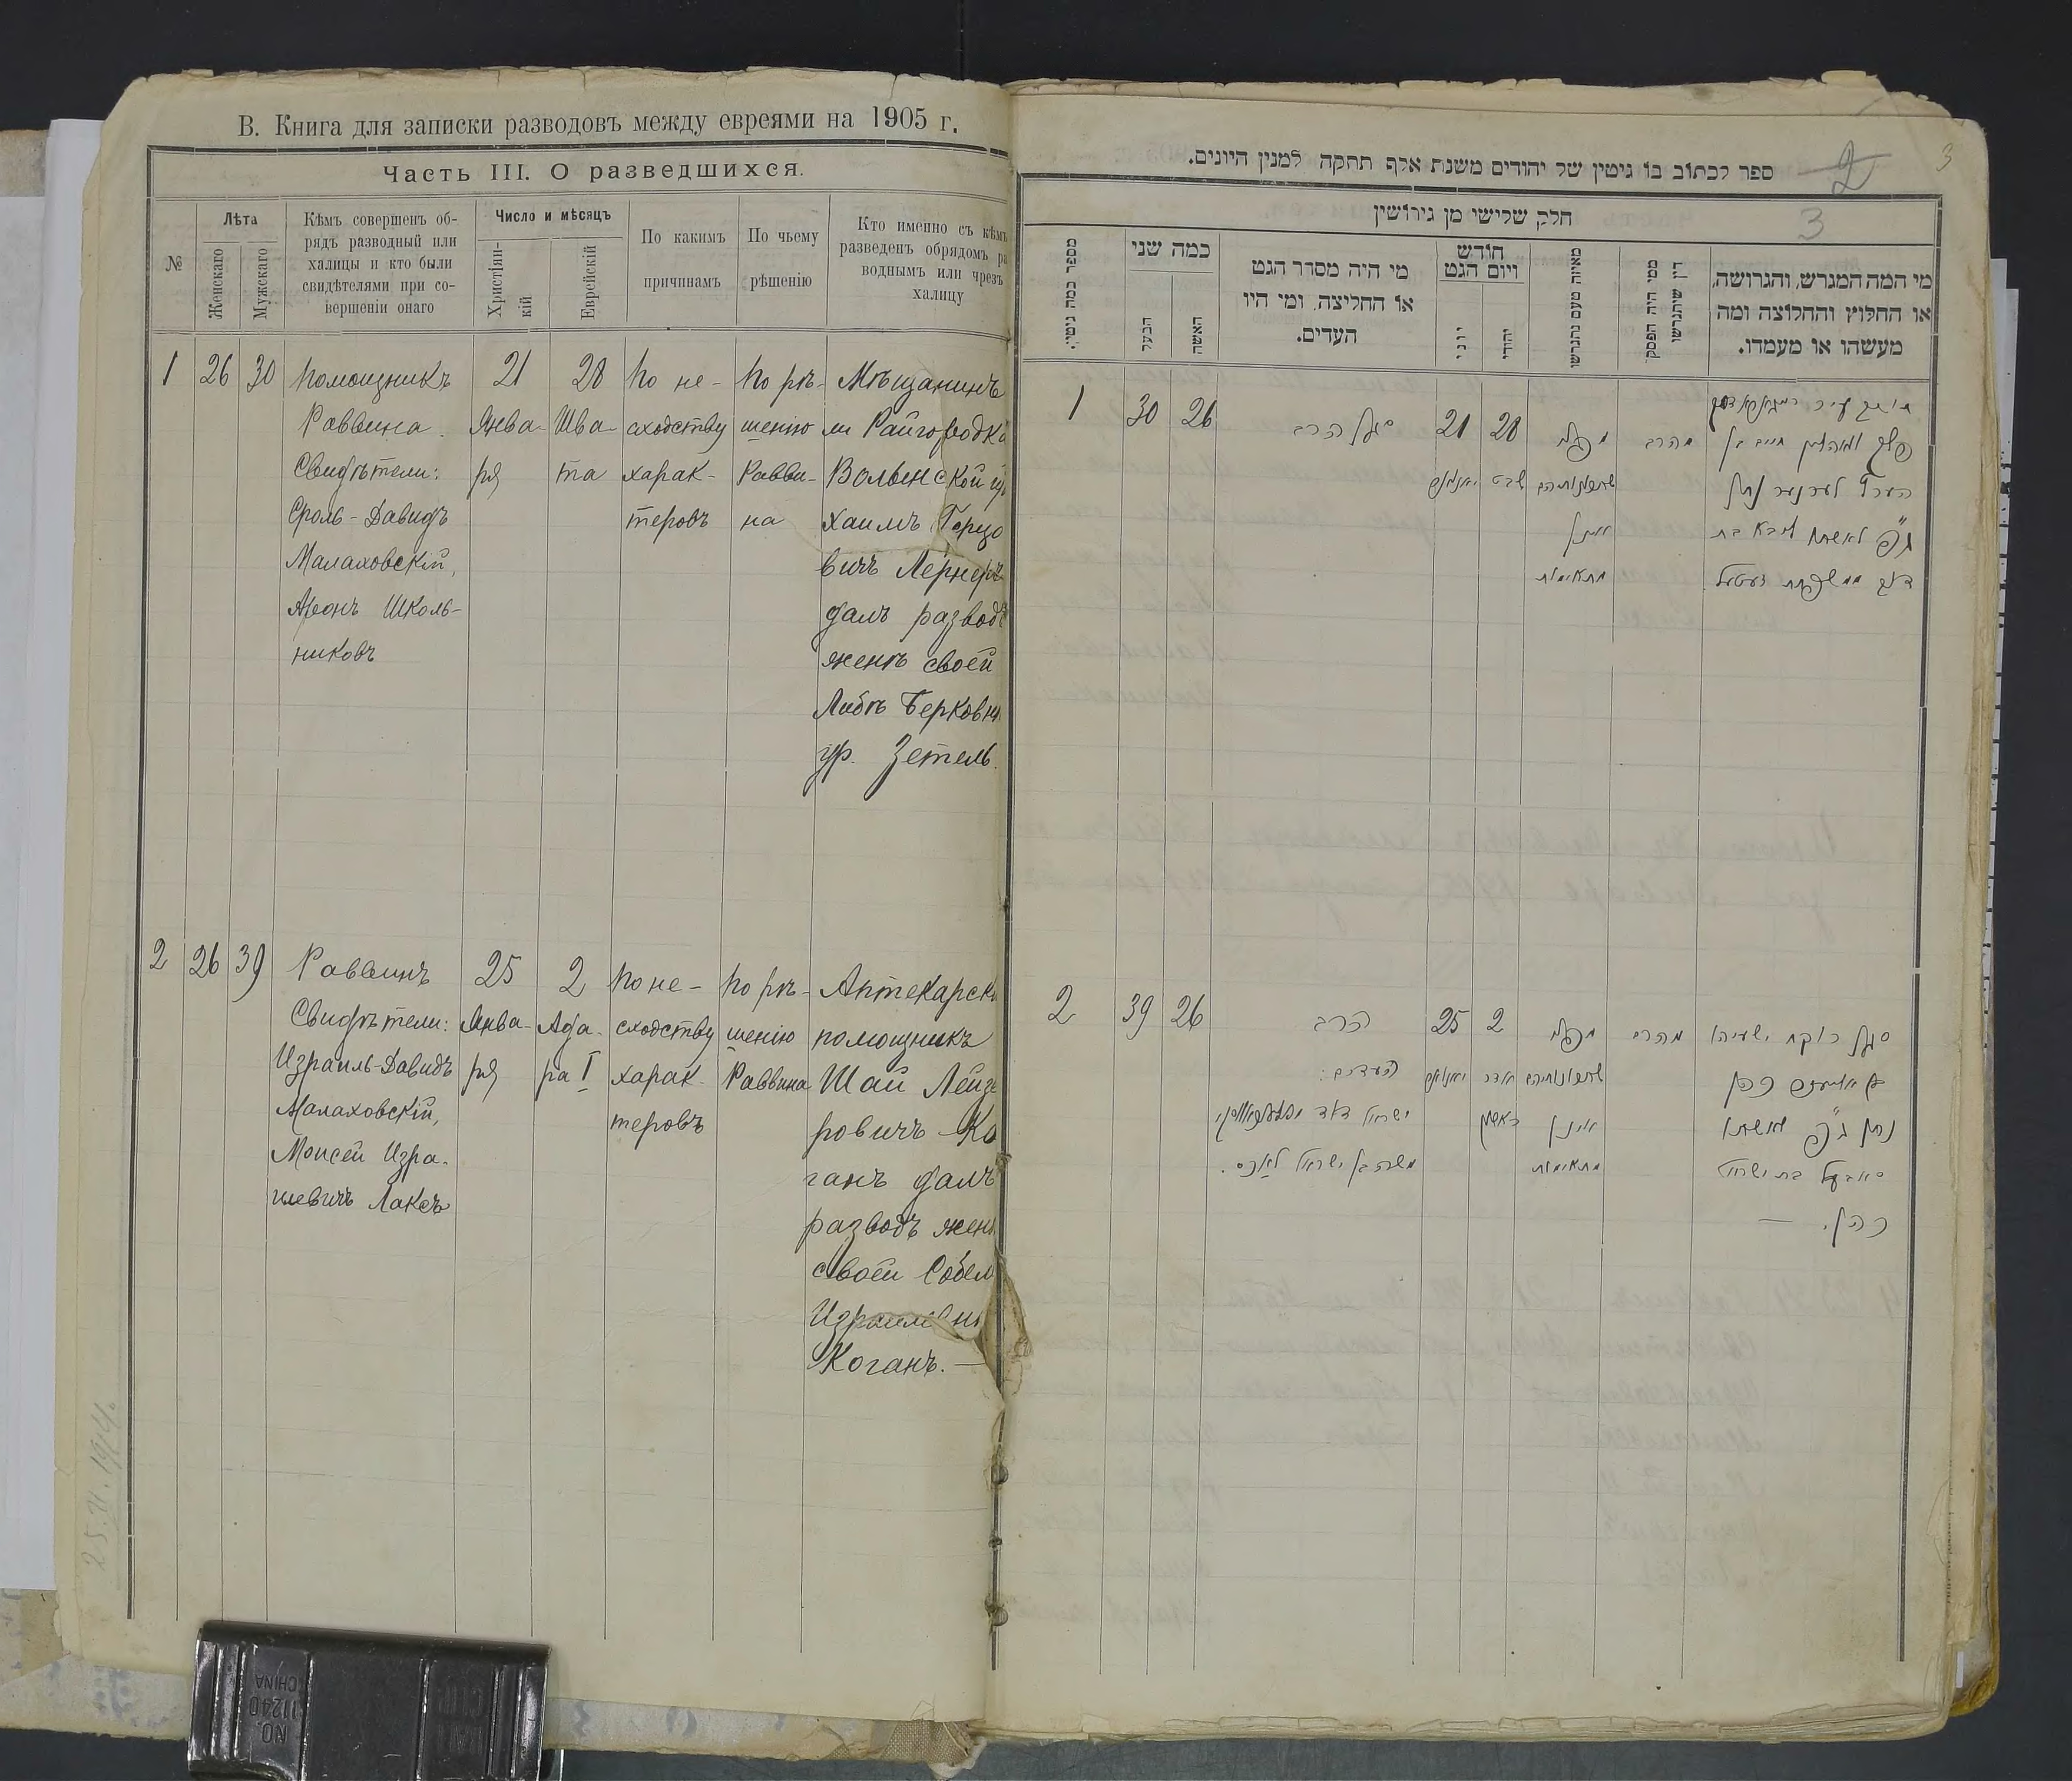 В. Книга для записки разводовъ между евреями на 1905 г.
Часть III. О разведшихся.
№
Лѣта
Женскаго
Мужскаго
Кѣмъ совершенъ об-
рядъ разводный или
халицы и кто были
свидѣтелями при со-
вершеніи онаго
Число и мѣсяцъ
Христіян-
кій
Еврейскій
По какимъ
причинамъ
По чьему
рѣшенію
Кто именно съ кѣмъ
разведенъ обрядомъ ра
воднымъ или чрезъ
халицу
1
26
30
Помощникъ
Раввина.
Свидѣтели:
Сроль-Давидъ
Малаховскій,
Аронъ Школь-
никовъ
21
Янва-
ря
28
Шва-
та
По не-
сходству
харак-
теровъ
По рѣ-
шенію
Равви-
на
Мѣщанинъ
м Райгородка
Волынской
Хаимъ Герцо
вичъ Лернеръ
далъ разводъ
женѣ своей
Либѣ Берковн
ур. Зетель.
2
26
39
Раввинъ
Свидѣтели:
Израиль-Давидъ
Малаховскій,
Моисей Изра-
илевичъ Лаксъ
25
Янва-
ря
2
Ада-
ра I
По не-
сходству
харак-
теровъ
По рѣ-
шенію
Раввина
Аптекарск
помощникъ
Шай Лейзе
ровичъ Ко
ганъ далъ
разводъ жен
своей Собел
Израилевн
Коганъ. —
25.II.1944.
ספר לכתוב בו גיטין של יהודים משנת אלף תתקה למנין היונים.
2
3
3
חלק שלישי מן גירושין
מספר כמה גיטין.
כמה שני
הבעל
האשה
מי היה מסדר הגט
או החליצה, ומי היו
העדים.
חודש
ויום הגט
יוני
יהודי
מאיזה טעם נתגרשו
ממי היה הפסק
דין שיתגרשו
מי המה המגרש, והגרושה,
או החלוץ והחלוצה ומה
מעשהו או מעמדו.
1
30
26
סגן הרב
21
יאנואר
28
שבט
מפני
אינן
מתאימות
מהרב
חיים בן
הערץ לערנער נתן
ג"פ לאשתו ליבא בת
2
39
26
הרב
העדים:
ישראל דוד
משה בן ישראל לאקס.
25
יאנואר
2
אדר
ראשון
מפני
אינן
מתאימות
מהרב
סגן רוקח ישעיהו
בן אליעזר כהן
נתן ג"פ לאשתו
סאבעל בת ישראל
כהן. —
NO.
11240
CHINA